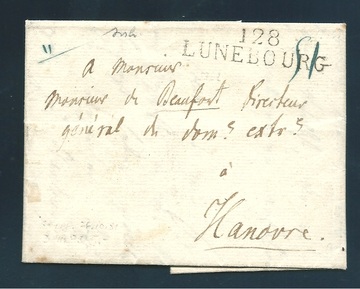 128
LUNEBOURG
A Monsieur
Monsieur de Beaufort Directeur
général du dom.s extr.s
à
Hanovre.